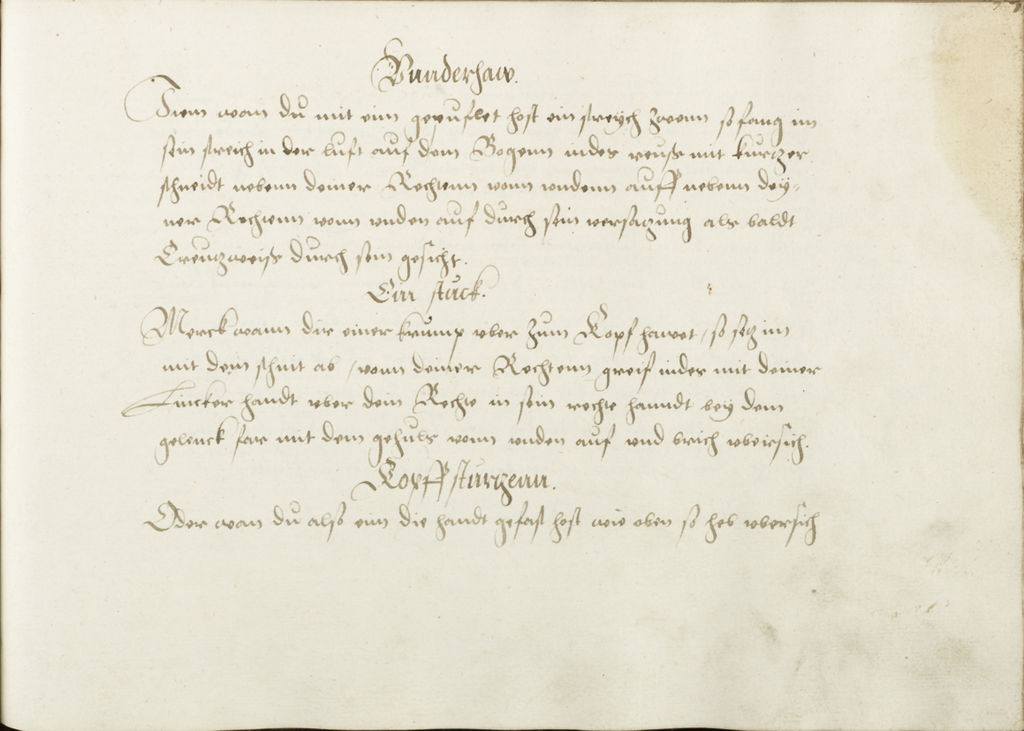 Vunderhaw.
Item wan du mit eim gepuflet host ein streych zwenn so fang im
sein streich in der luft auf dem Bogenn indes reuß mit kurtzer
schneidt nebenn deiner Rechtenn vonn undenn auff nebenn dey-
ner Rechtenn vonn unden auf durch sein versatzung als baldt
Creutzweiß durch sein gesicht.
Ein stuck.
Merck wann dir einer krump uber zum Kopf hawet / so setz im
mit dem schnit ab / vonn deiner Rechtenn greif indes mit deiner
Lincker handt uber dein Rechte in sein rechte hanndt bey dem
gelenck far mit dem gehuls vonn unden auf und brich ubersich.
Kopff sturtzenn.
Oder wan du also eim die handt gefast host wie oben so heb ubersich